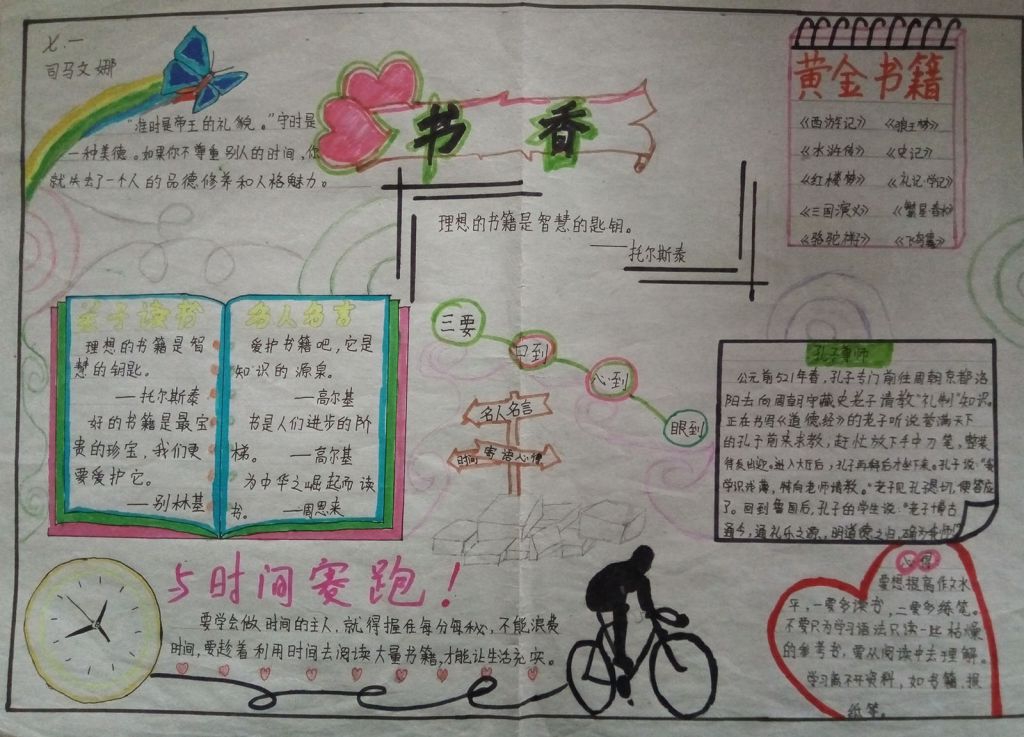 七.一
司马文娜
"准时是帝王的礼貌。"守时是
一种美德。如果你不尊重别人的时间，你
就失去了一个人的品德修养和人格魅力。
书香
理想的书籍是智慧的匙钥。
——托尔斯泰
黄金书籍
《西游记》 《狼王梦》
《水浒传》 《史记》
《红楼梦》 《礼记·学记》
《三国演义》 《繁星春水》
《骆驼祥子》 《飞鸟集》
关于读书
理想的书籍是智
慧的钥匙。
——托尔斯泰
好的书籍是最宝
贵的珍宝，我们更
要爱护它。
——别林基
名人名言
爱护书籍吧，它是
知识的源泉。
——高尔基
书是人们进步的阶
梯。 ——高尔基
为中华之崛起而读
书。 ——周恩来
三要
口到
心到
眼到
名人名言
时间寄语心得
孔子尊师
公元前521年春，孔子专门前往周朝京都洛
阳去向周朝守藏史老子请教"礼制"知识
正在书写《道德经》的老子听说誉满天下
的孔子前来求教，赶忙放下手中刀笔，整装
待发出迎。进入大厅后，孔子再辞后才坐下来。孔子说："
学识浅薄，特向老师请教。"老子见孔子
了。回到鲁国后，孔子的学生说："老子博古
通今，通礼乐之源，明道德之归，
与时间赛跑！
要学会做时间的主人，就得握住每分每秒，不能浪费
时间，要趁着利用时间去阅读大量书籍，才能让生活充实。
心得
要想提高作文水
平，一要多读书，二要多练笔。
不要只为学习语法只读一些枯燥
的参考书，要从阅读中去理解。
学习离不开资料，如书籍.报
纸等。